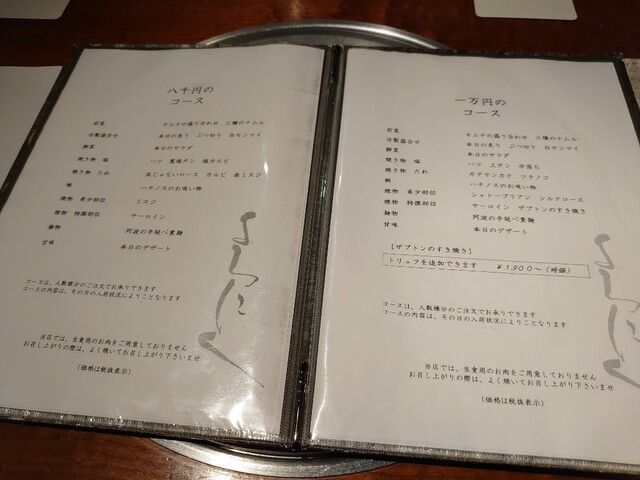 八千円の
コース
前菜 キムチの盛り合わせ 三種のナムル
冷製盛合せ 本日の炙り ぶつ切り 白センマイ
鮮菜 本日のサラダ
焼き物 塩 ハツ 黒塩タン 塩カルビ
焼き物 たれ 並じゃないロース カルビ 赤ミスジ
椀 ハチノスのお吸い物
焼物 希少部位 ミスジ
焼物 特撰部位 サーロイン
麺物 阿波の手延べ素麺
甘味 本日のデザート
コースは、人数様分のご注文でお承りできます
コースの内容は、その日の入荷状況によりことなります
よろにく
当店では、生食用のお肉をご用意しておりません
お召し上がりの際は、よく焼いてお召し上がり下さいませ
(価格は税抜表示)
一万円の
コース
前菜 キムチの盛り合わせ 三種のナムル
冷製盛合せ 本日の炙り ぶつ切り 白センマイ
鮮菜 本日のサラダ
焼き物 塩 ハツ 上タン 中落ち
焼き物 たれ カタサンカク ツチノコ
椀 ハチノスのお吸い物
焼物 希少部位 シャトーブリアン シルクロース
焼物 特撰部位 サーロイン ザブトンのすき焼き
麺物 阿波の手延べ素麺
甘味 本日のデザート
[ザブトンのすき焼き]
トリュフを追加できます ¥1,900～(時価)
コースは、人数様分のご注文でお承りできます
コースの内容は、その日の入荷状況によりことなります
よろにく
当店では、生食用のお肉をご用意しておりません
お召し上がりの際は、よく焼いてお召し上がり下さいませ
(価格は税抜表示)